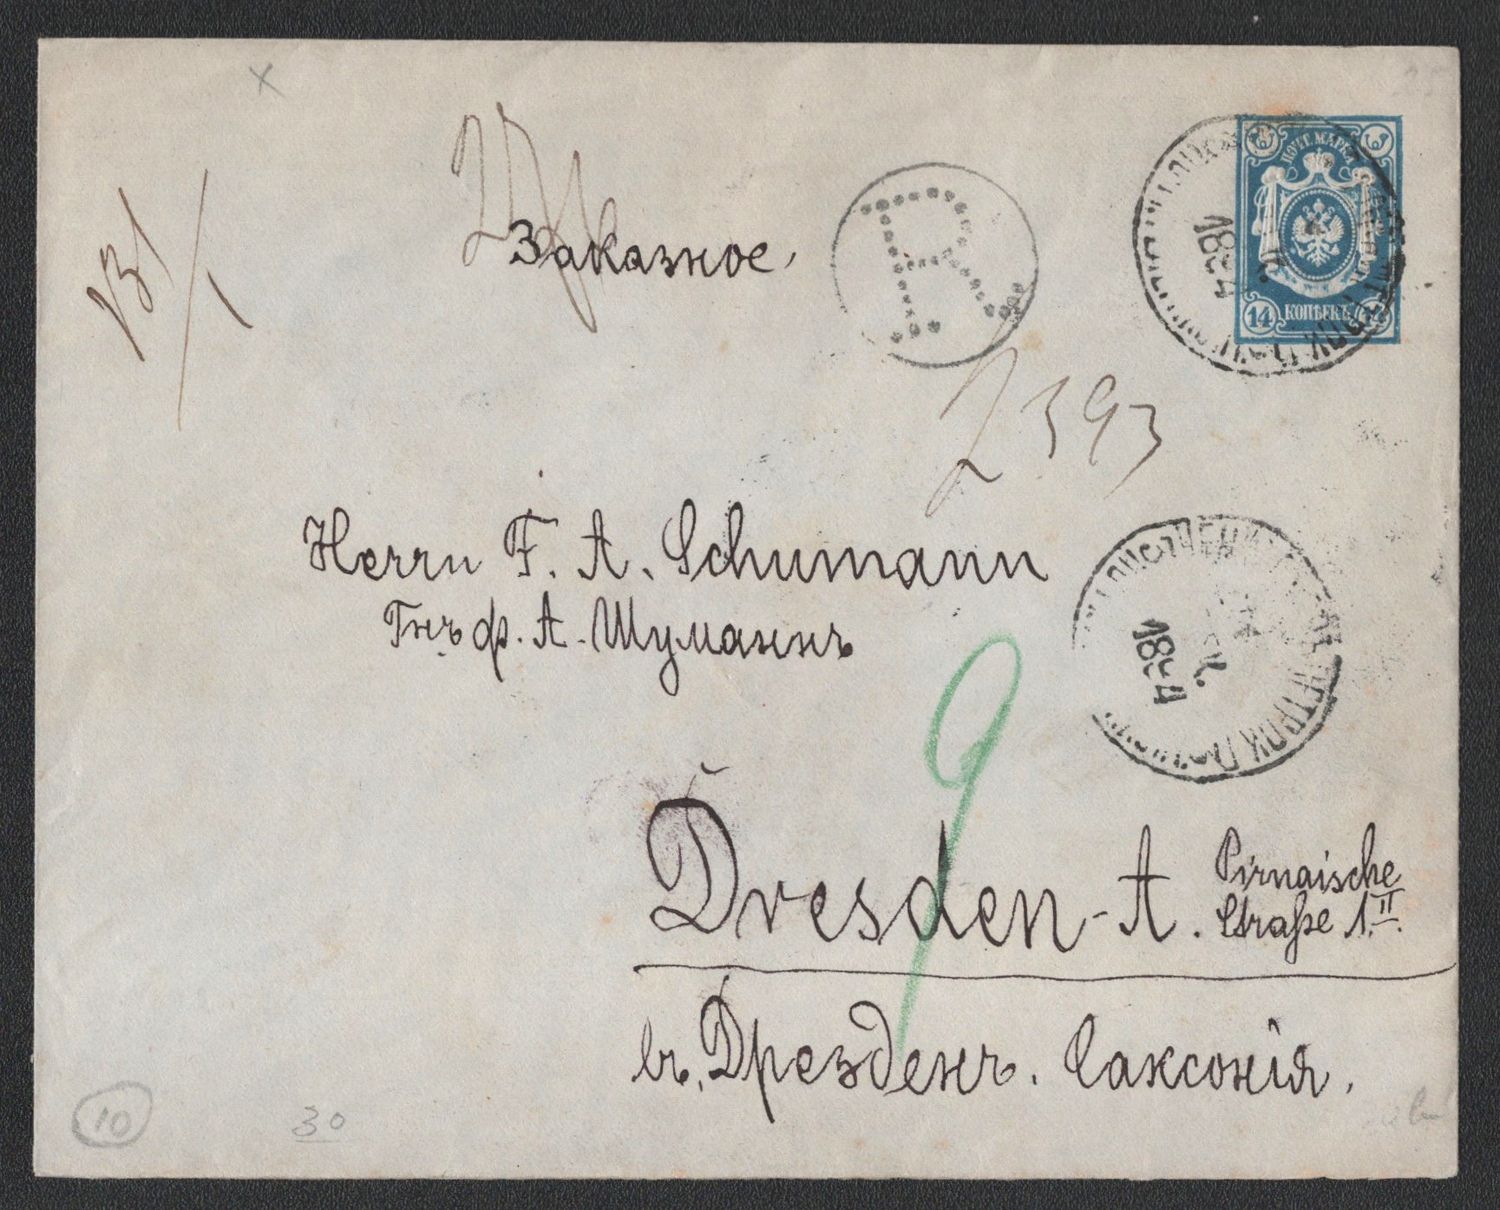 Заказное.
R
ПОЧТ. МАРКА
14 КОПѢЕКЪ 14
1894
2393
Herrn F. A. Schumann
Гнъ ф. А. Шуманнъ
1894
9
Dresden-A. Pirnaische
Straße 1.II.
въ Дрезденъ. Саксонія.
10
30